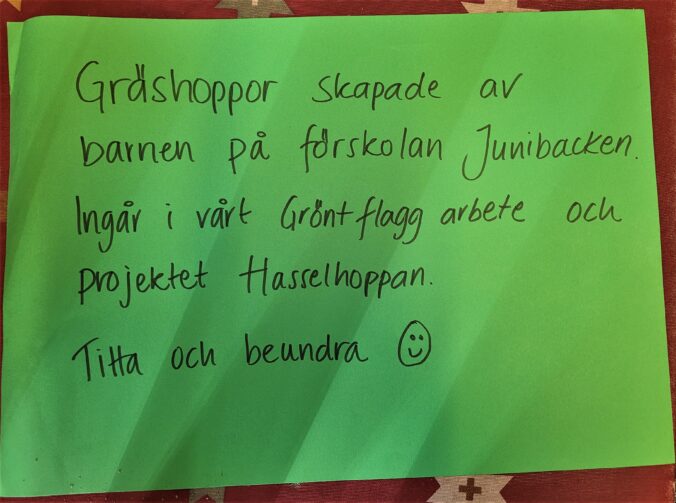 Gräshoppor skapade av
barnen på förskolan Junibacken.
Ingår i vårt Grönt flagg arbete och
projektet Hasselhoppan.
Titta och beundra ☺